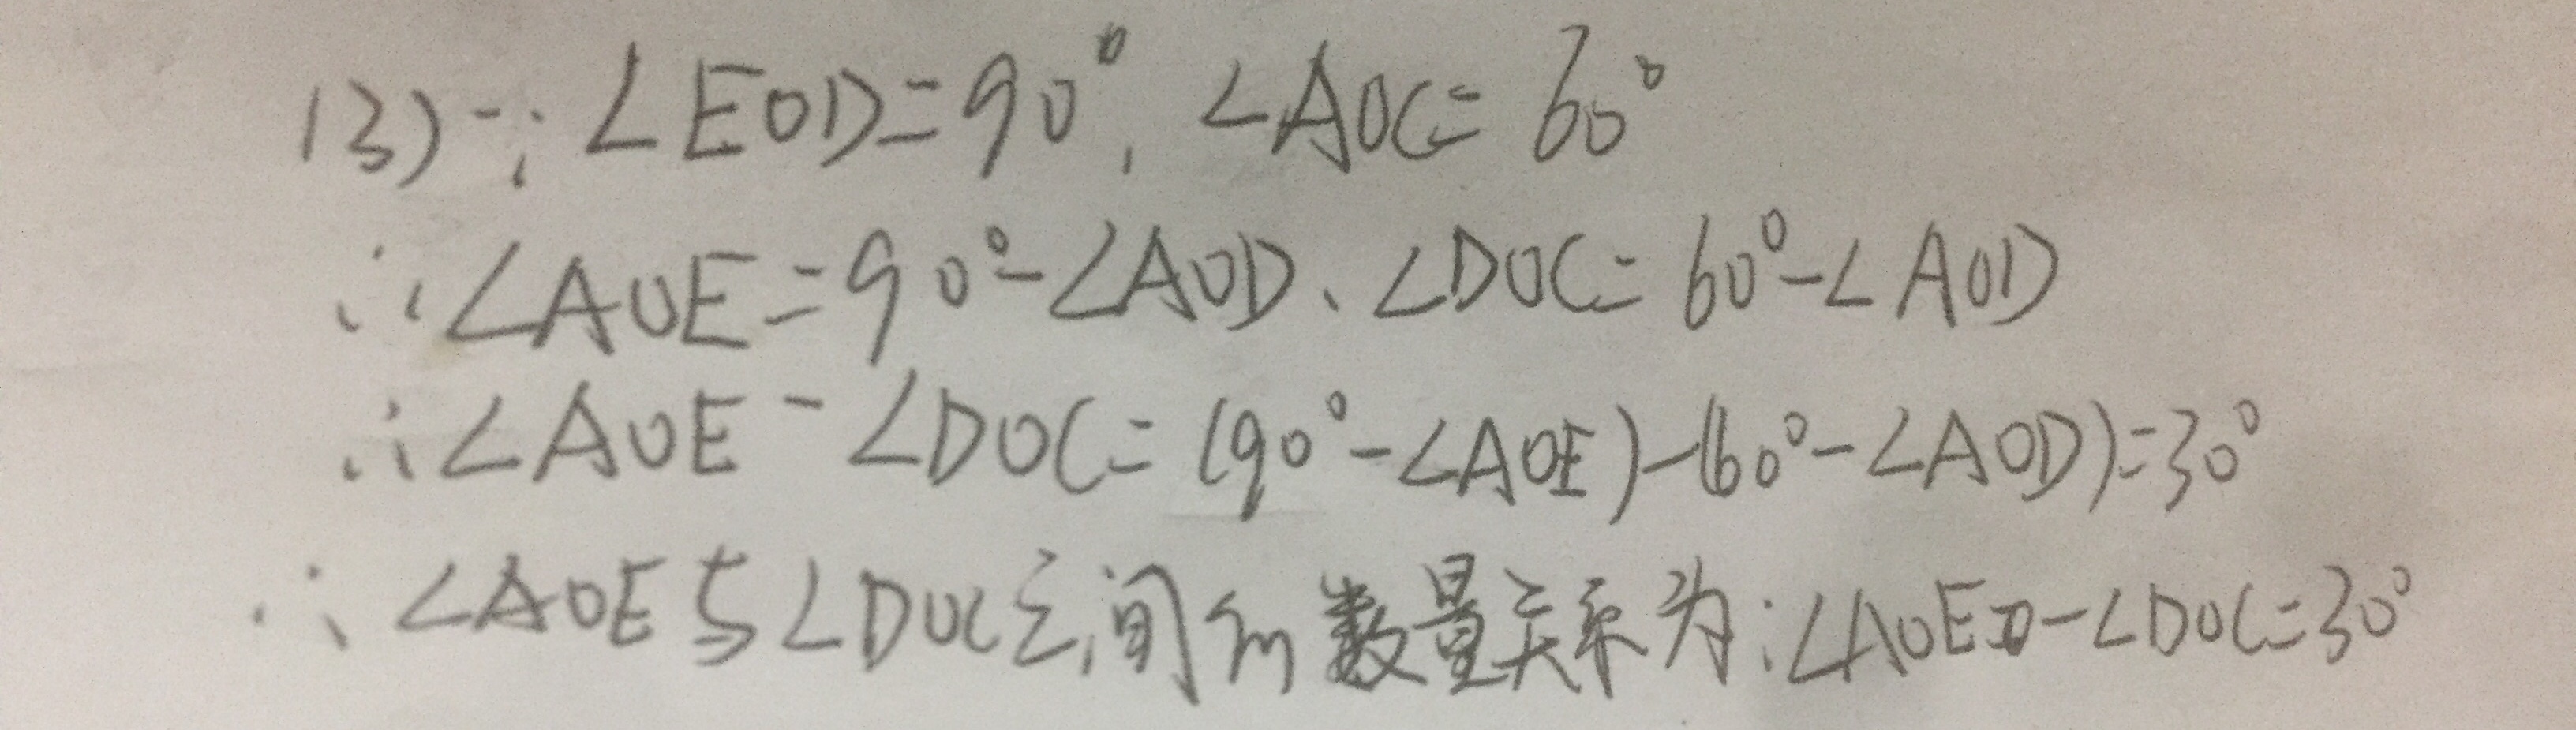 (3)∵∠EOD=90°,∠AOC=60°
∴∠AOE=90°-∠AOD、∠DOC=60°-∠AOD
∴∠AOE-∠DOC=(90°-∠AOE)-(60°-∠AOD)=30°
∴∠AOE与∠DOC之间的数量关系为:∠AOE-∠DOC=30°